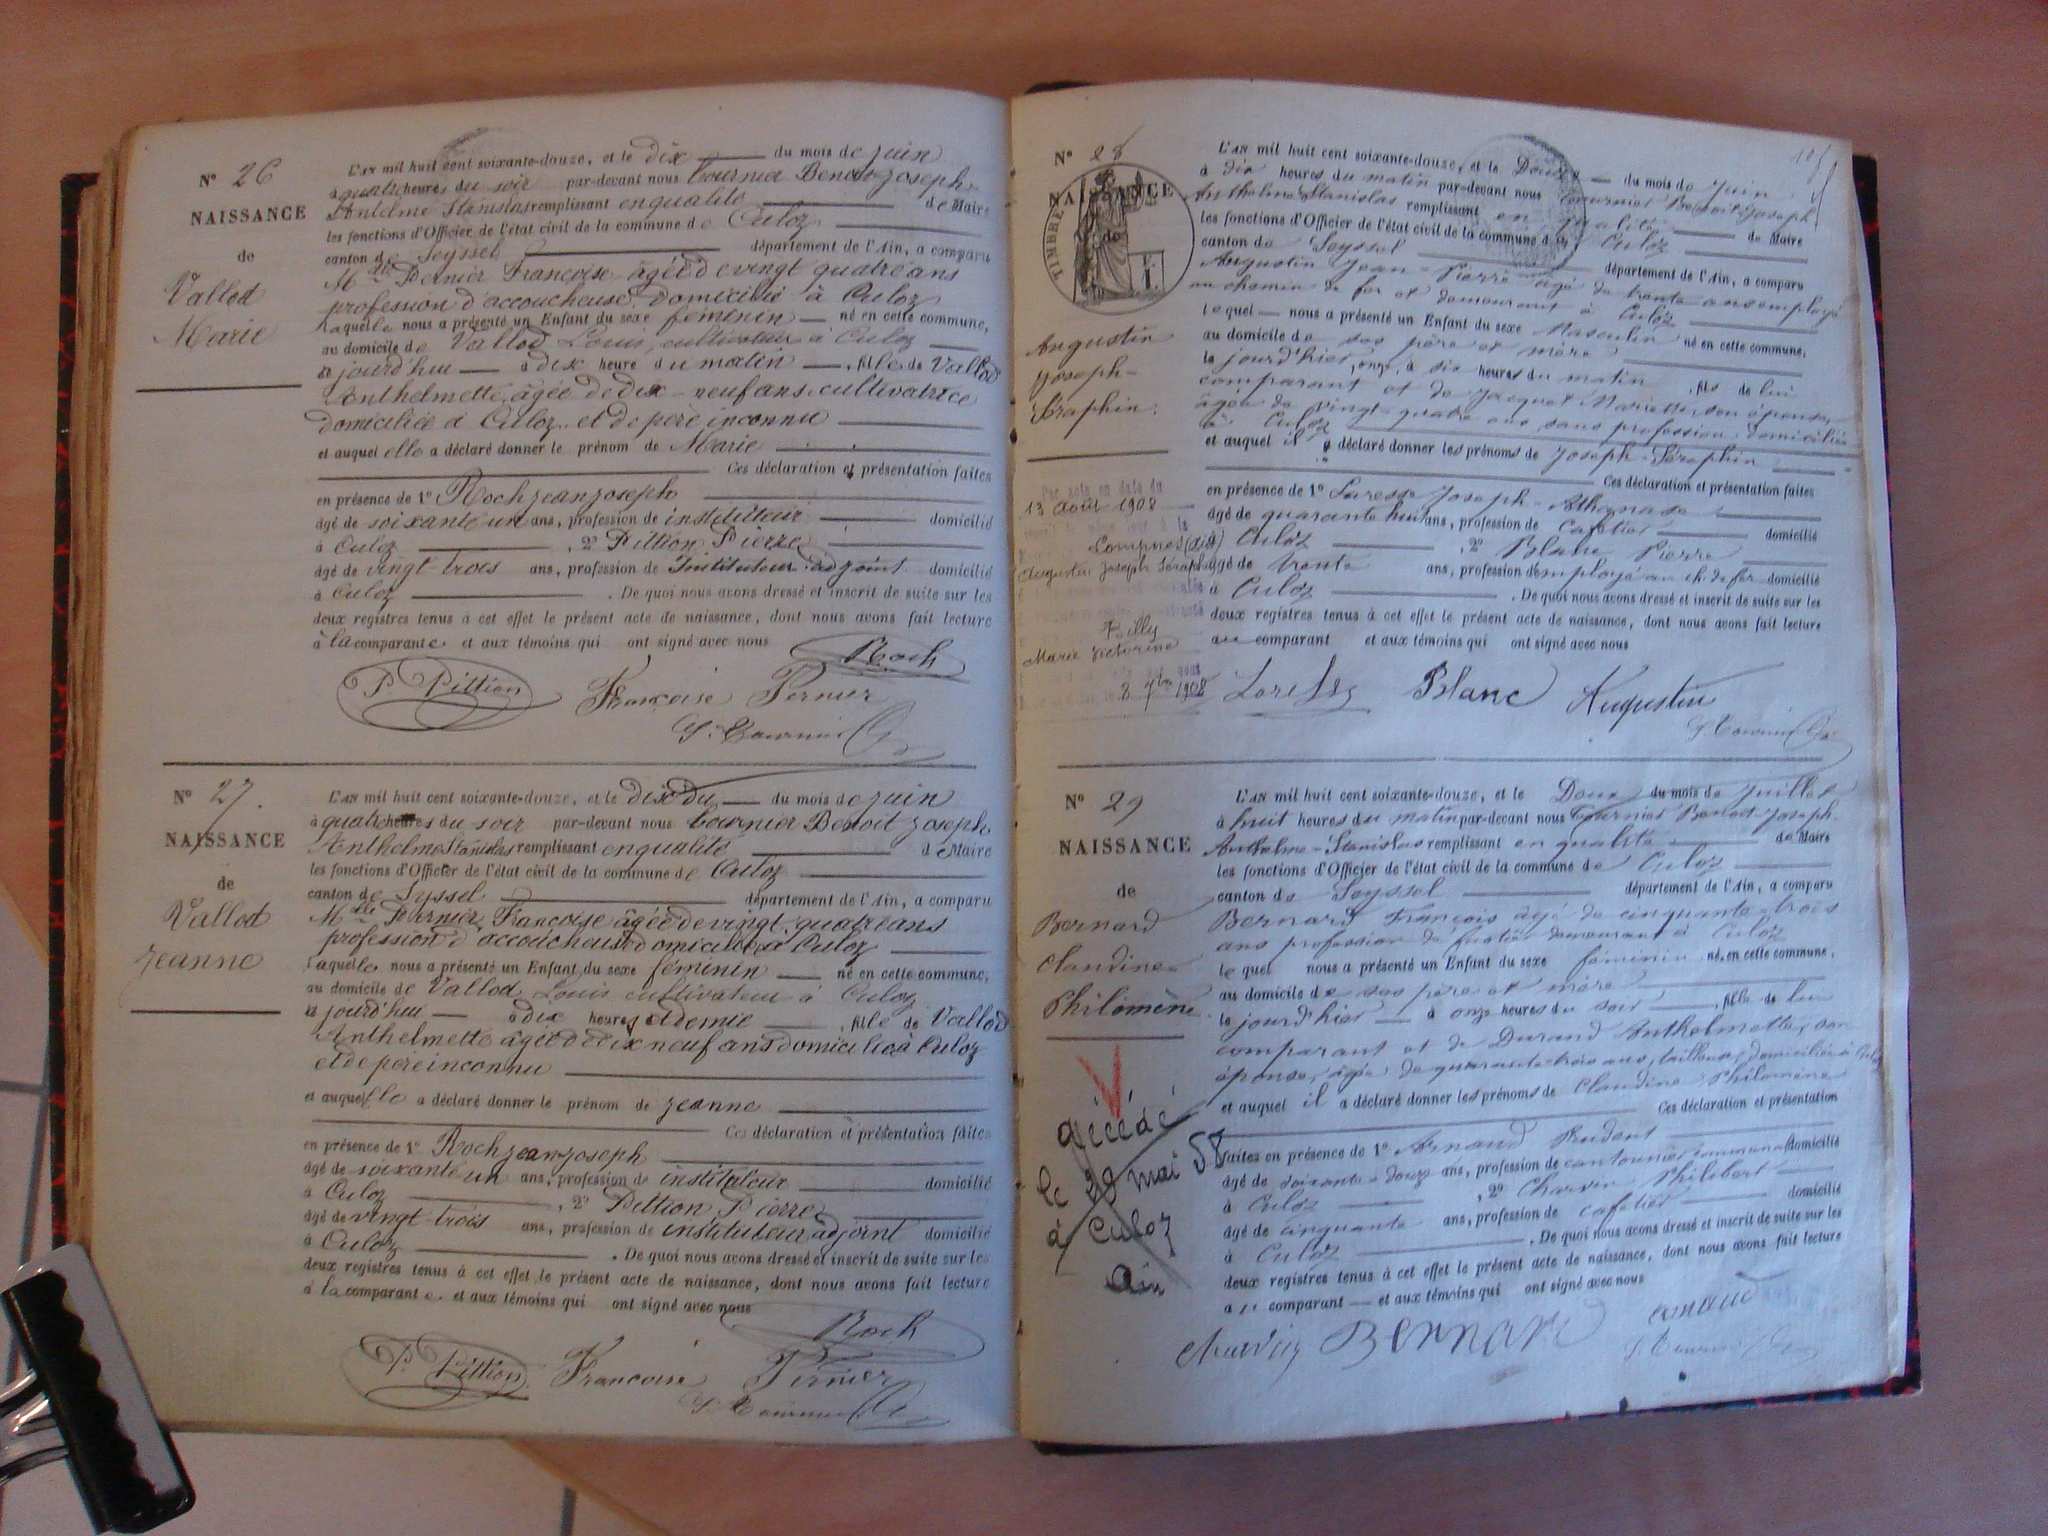 N° 26
NAISSANCE
de
Vallod
Marie
L'AN mil huit cent soixante-douze, et le dix du mois de juin
à quatre heures du soir par-devant nous tournier Benoit Joseph
Antelme Stanislas remplissant en qualité de Maire
les fonctions d'Officier de l'état civil de la commune de Culoz
canton de Seyssel département de l'Ain, a comparu
Mlle Pernier Françoise âgée de vingt quatre ans
profession d'accoucheuse, domiciliée à Culoz
laquelle nous a présenté un Enfant du sexe féminin né en cette commune,
au domicile de Vallod Louis, cultivateur à Culoz
ce jourd'hui à dix heure du matin, fille de Vallod
Anthelmette, âgée de dix-neuf ans, cultivatrice
domiciliée à Culoz, et de père inconnu
et auquel elle a déclaré donner le prénom de Marie
Ces déclaration et présentation faites
en présence de 1° Roch jean joseph
âgé de soixante un ans, profession de instituteur domicilié
à Culoz, 2° Pittion Pierre
âgé de vingt trois ans, profession de Instituteur adjoint domicilié
à Culoz. De quoi nous avons dressé et inscrit de suite sur les
deux registres tenus à cet effet le présent acte de naissance, dont nous avons fait lecture
à la comparante et aux témoins qui ont signé avec nous
Roch
P. Pittion Françoise Pernier
N° 27.
NAISSANCE
de
Vallod
Jeanne
L'AN mil huit cent soixante-douze, et le dix du du mois de juin
à quatre heures du soir par-devant nous tournier Benoit Joseph
Anthelme Stanislas remplissant en qualité de Maire
les fonctions d'Officier de l'état civil de la commune de Culoz
canton de Syssel département de l'Ain, a comparu
Mlle Pernier, Françoise âgée de vingt quatre ans
profession d'accoucheuse domiciliée à Culoz
laquelle nous a présenté un Enfant du sexe féminin né en cette commune,
au domicile de Vallod Louis cultivateur à Culoz
ce jourd'hui à dix heures et demie, fille de Vallod
Anthelmette âgée de dix neuf ans domiciliée à Culoz
et de père inconnu
et auquel elle a déclaré donner le prénom de jeanne
Ces déclaration et présentation faites
en présence de 1° Roch jean-joseph
âgé de soixante un ans, profession de instituteur domicilié
à Culoz, 2° Pittion Pierre
âgé de vingt-trois ans, profession de instituteur adjoint domicilié
à Culoz. De quoi nous avons dressé et inscrit de suite sur les
deux registres tenus à cet effet le présent acte de naissance, dont nous avons fait lecture
à la comparante et aux témoins qui ont signé avec nous
Roch
P. Pittion Françoise Pernier
N° 28
NAISSANCE
de
TIMBRE
Augustin
Joseph-
Séraphin.
L'AN mil huit cent soixante-douze, et le Douze du mois de Juin
à dix heures du matin par-devant nous Tournier Benoit-Joseph
Anthelme Stanislas remplissant en qualité de Maire
les fonctions d'Officier de l'état civil de la commune de Culoz
canton de Seyssel département de l'Ain, a comparu
Augustin Jean-Pierre âgé de trente ans employé
au chemin de fer et demeurant à Culoz
lequel nous a présenté un Enfant du sexe Masculin né en cette commune,
au domicile de ses père et mère
le jourd'hier, onze, à six heures du matin, fils de lui
comparant et de Jacquet Mariette, son épouse,
âgée de vingt-quatre ans sans profession domiciliée
à Culoz
et auquel il a déclaré donner les prénoms de Joseph-Séraphin
Ces déclaration et présentation faites
en présence de 1° Joseph-Athanase
âgé de quarante huit ans, profession de Cafetier domicilié
à Culoz, 2° Blanc Pierre
âgé de trente ans, profession d'employé au ch. de fer domicilié
à Culoz. De quoi nous avons dressé et inscrit de suite sur les
deux registres tenus à cet effet le présent acte de naissance, dont nous avons fait lecture
au comparant et aux témoins qui ont signé avec nous
Par acte en date du
13 Août 1908
Compnes (Ain)
Augustin Joseph Séraphin
Billy
Marie Victorine
8 7bre 1908
Blanc Augustin
N° 29
NAISSANCE
de
Bernard
Claudine-
Philomène
L'AN mil huit cent soixante-douze, et le Deux du mois de Juillet
à huit heures du matin par-devant nous Tournier Benoit-Joseph-
Anthelme-Stanislas remplissant en qualité de Maire
les fonctions d'Officier de l'état civil de la commune de Culoz
canton de Seyssel département de l'Ain, a comparu
Bernard François âgé de cinquante-trois
ans profession de demeurant à Culoz
lequel nous a présenté un Enfant du sexe féminin né en cette commune,
au domicile de ses père et mère
le jourd'hier à onze heures du soir, fille de lui
comparant et de Durand Anthelmette, son
épouse, âgée de quarante-trois ans, tailleuse, domiciliée à Culoz
et auquel il a déclaré donner les prénoms de Claudine Philomène
Ces déclaration et présentation
faites en présence de 1° Arnaud Prudent
âgé de soixante-douze ans, profession de cantonnier communal domicilié
à Culoz, 2° Charvin Philibert
âgé de cinquante ans, profession de cafetier domicilié
à Culoz. De quoi nous avons dressé et inscrit de suite sur les
deux registres tenus à cet effet le présent acte de naissance, dont nous avons fait lecture
au comparant et aux témoins qui ont signé avec nous
décédé
le 20 mai 58
à Culoz
Ain
Charvin Bernard arnaud